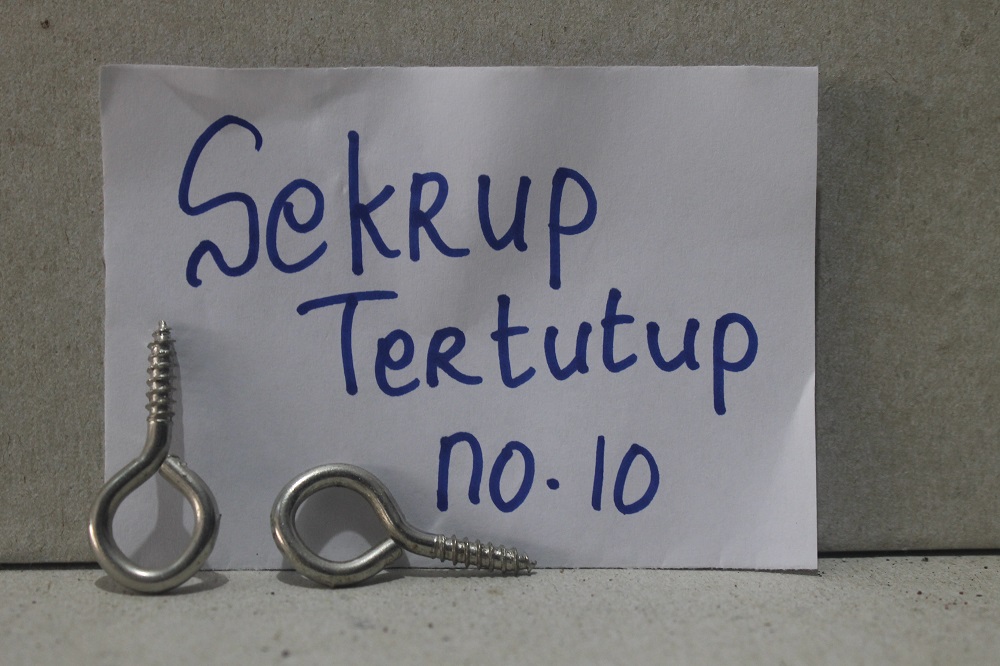 Sekrup
Tertutup
no. 10